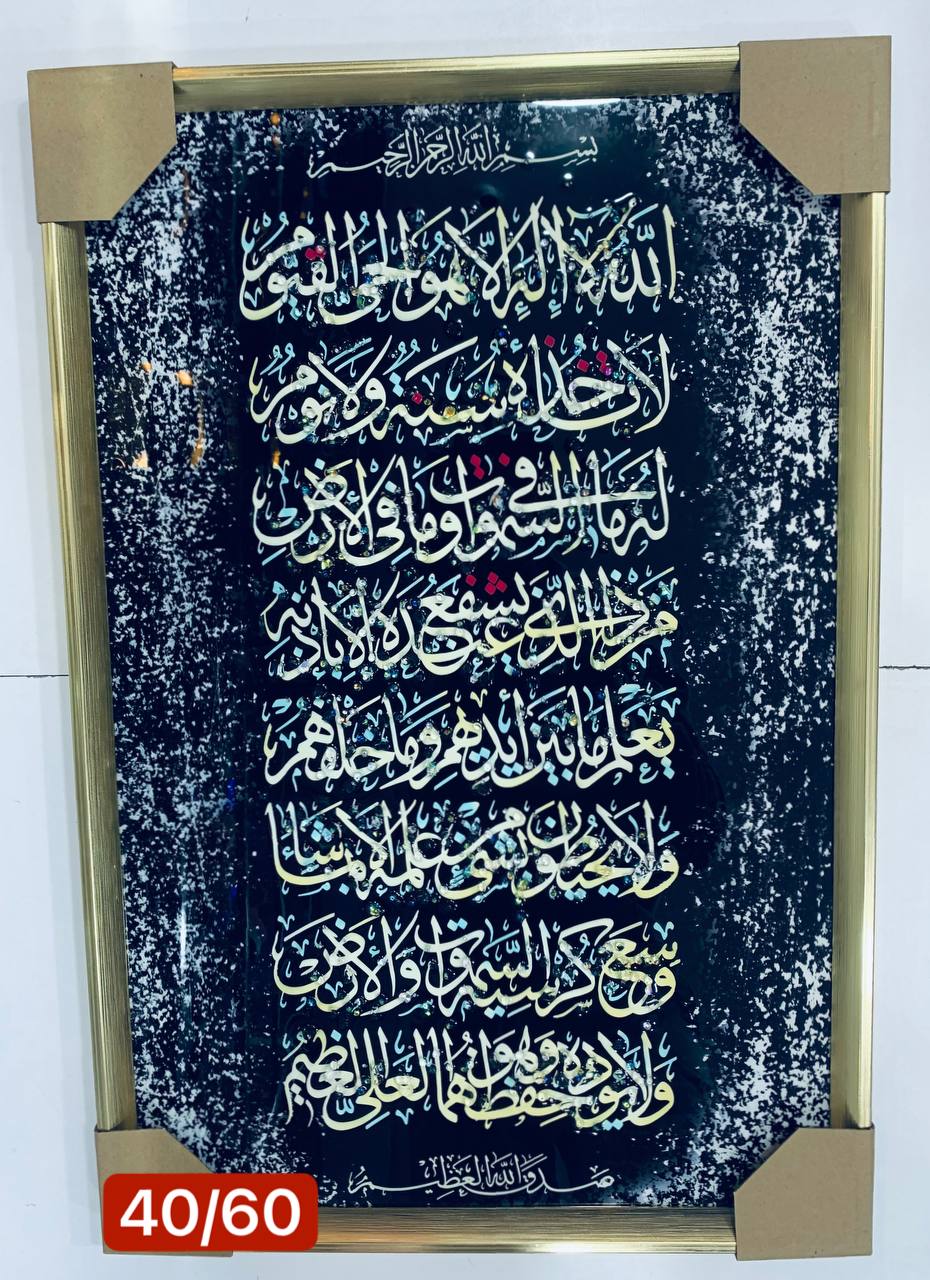 بسم الله الرحمن الرحيم
الله لا إله إلا هو الحي القيوم
لا تأخذه سنة ولا نوم
له ما في السموات وما في الأرض
من ذا الذي يشفع عنده إلا بإذنه
يعلم ما بين أيديهم وما خلفهم
ولا يحيطون بشيء من علمه إلا بما شاء
وسع كرسيه السموات والأرض
ولا يؤده حفظهما وهو العلي العظيم
صدق الله العظيم
40/60